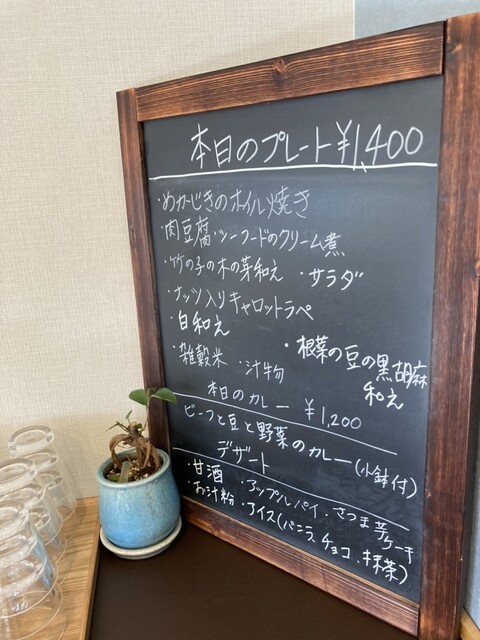 本日のプレート ¥1,400
・めかじきのホイル焼き
・肉豆腐・シーフードのクリーム煮
・竹の子の木の芽和え ・サラダ
・ナッツ入りキャロットラペ
・白和え
・根菜の豆の黒胡麻和え
・雑穀米 ・汁物
本日のカレー ¥1,200
ビーフと豆と野菜のカレー(小鉢付)
デザート
・甘酒 ・アップルパイ ・さつま芋ケーキ
・お汁粉 ・アイス(バニラ、チョコ、抹茶)